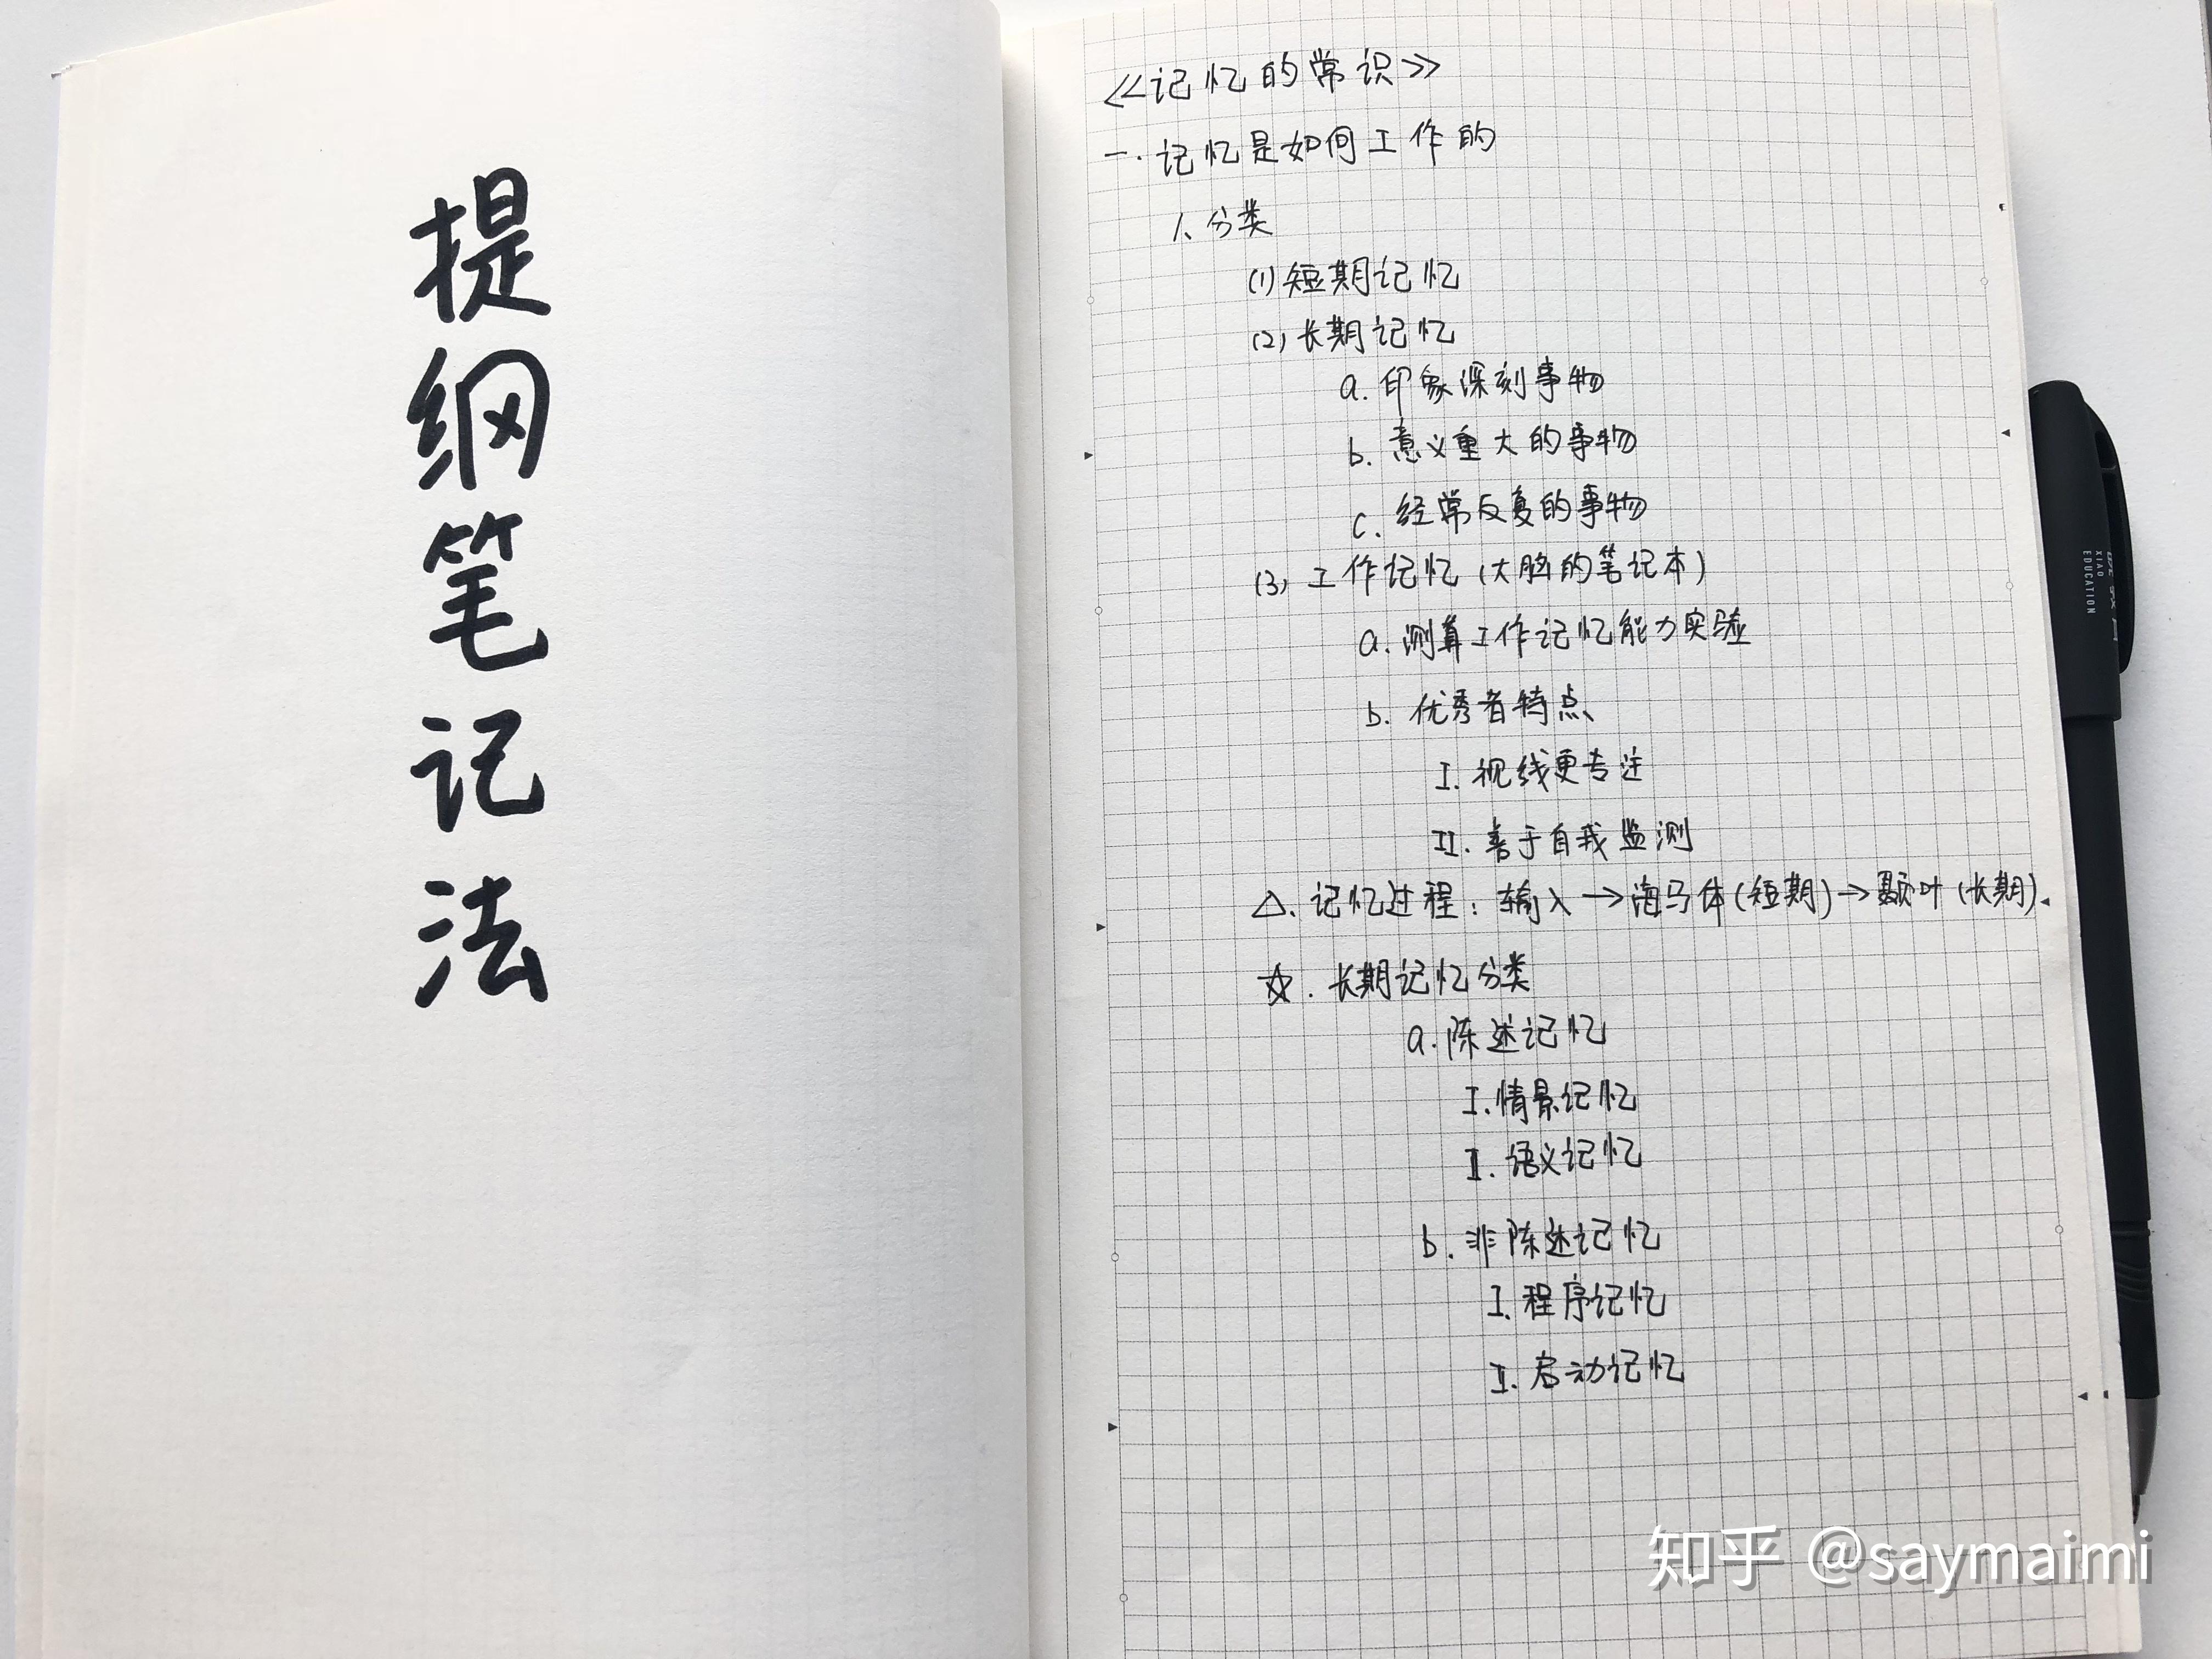 提纲笔记法
《记忆的常识》
一.记忆是如何工作的
1、分类
(1)短期记忆
(2)长期记忆
a.印象深刻事物
b.意义重大的事物
c.经常反复的事物
(3)工作记忆(大脑的笔记本)
a.测算工作记忆能力实验
b.优秀者特点
I.视线更专注
II.善于自我监测
△.记忆过程:输入→海马体(短期)→颞叶(长期).
☆.长期记忆分类
a.陈述记忆
I.情景记忆
II.语义记忆
b.非陈述记忆
I.程序记忆
II.启动记忆
XIAO
EDUCATION
知乎 @saymaimi